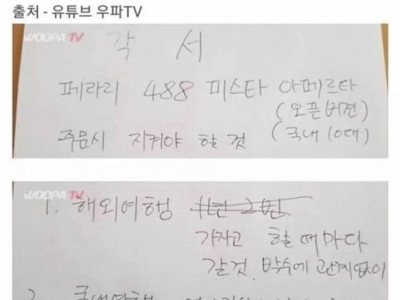 출처 - 유튜브 우파TV
WOOPA TV
각 서
페라리 488 피스타 아페르타
(오픈버젼)
주문시 지켜야 할 것 (국내 10대)
WOOPA TV
1. 해외여행 1년 2번
가자고 할 때마다
갈것. 박수에 관계없이
2. 국내여행